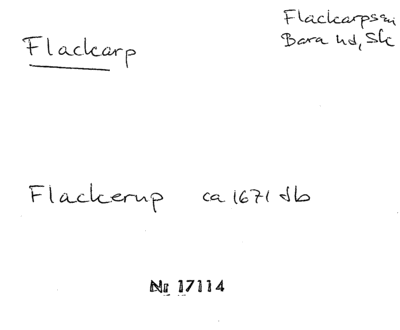 Flackarp
Flackarps sn
Bara hd, Sk
Flackerup ca 1671 Jb
Nr 17114